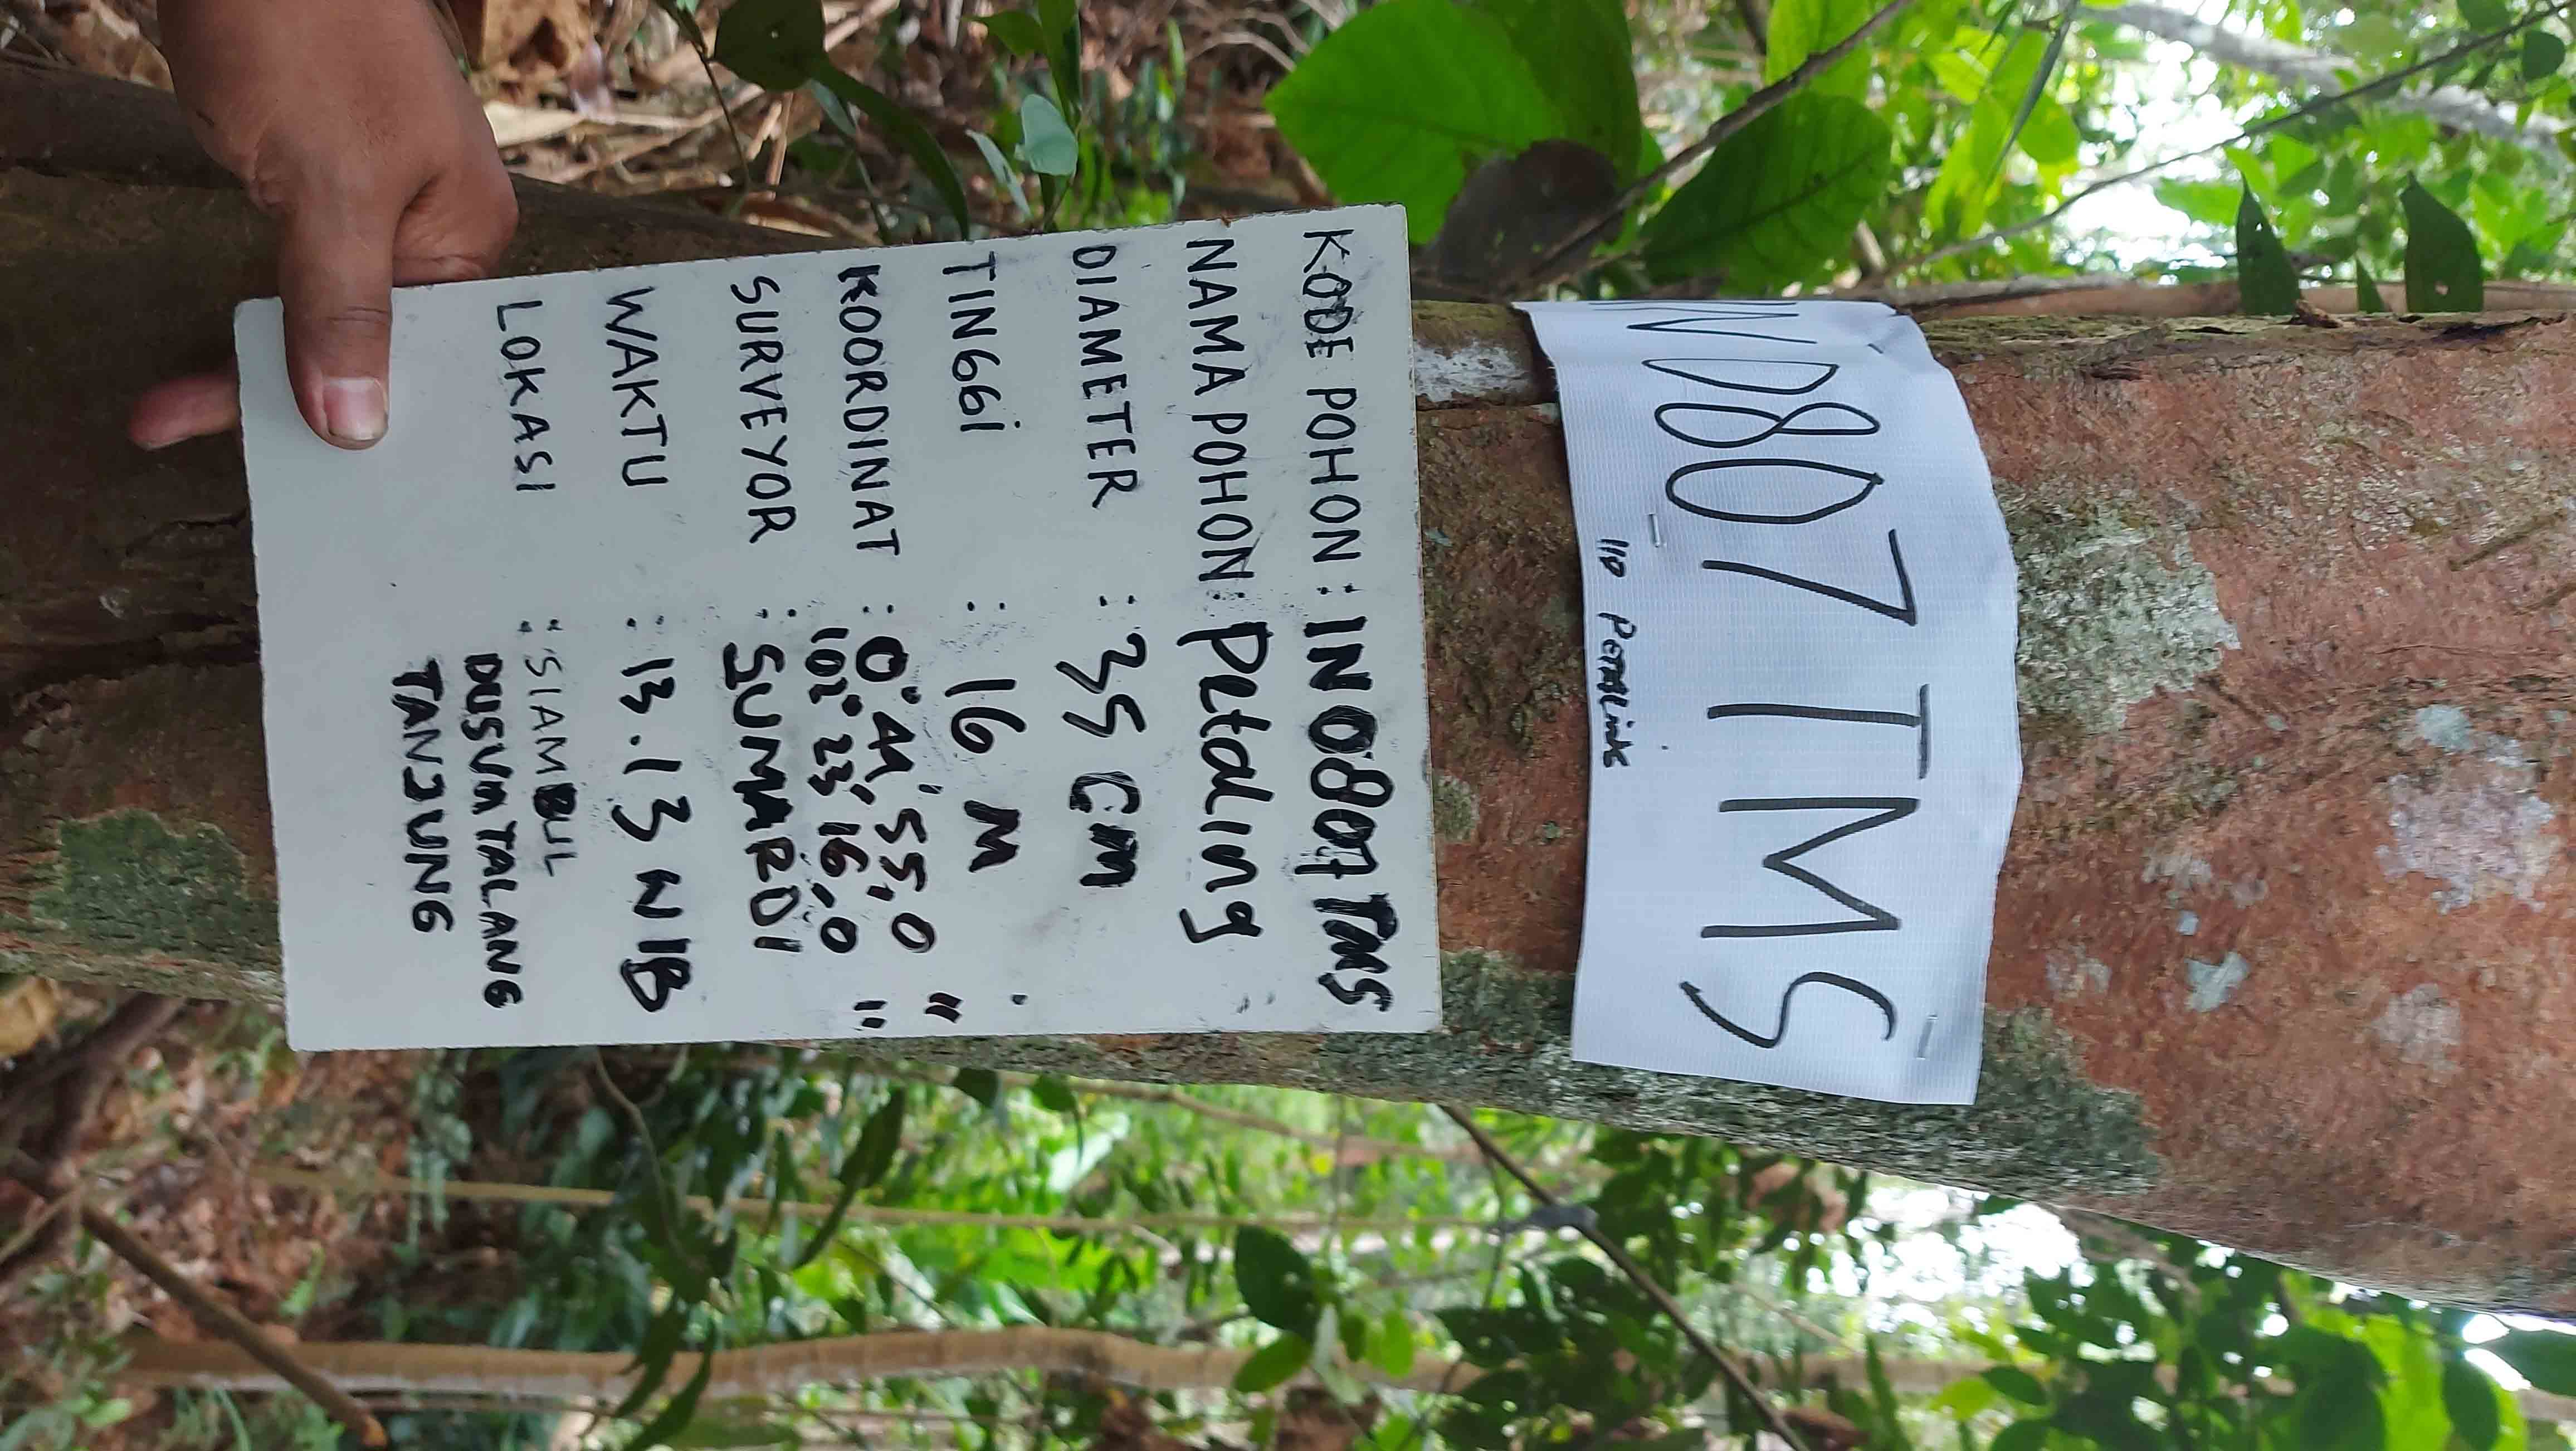 IN0807 TMS
110 PETALING
KODE POHON : IN0807 TMS
NAMA POHON : Petaling
DIAMETER : 35 CM
TINGGi : 16 M
KOORDINAT : 0° 44' 55,0 "
102° 23' 16,0 "
SURVEYOR : SUMARDI
WAKTU : 13.13 WIB
LOKASI : SIAMBUL
DUSUM TALANG
TANJUNG